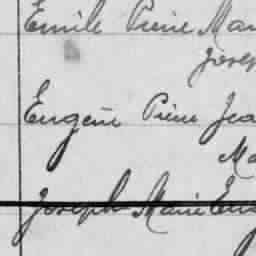 Emile Pierre Mar
Josep
Eugène Pierre Jea
Ma
Joseph Marie Eug